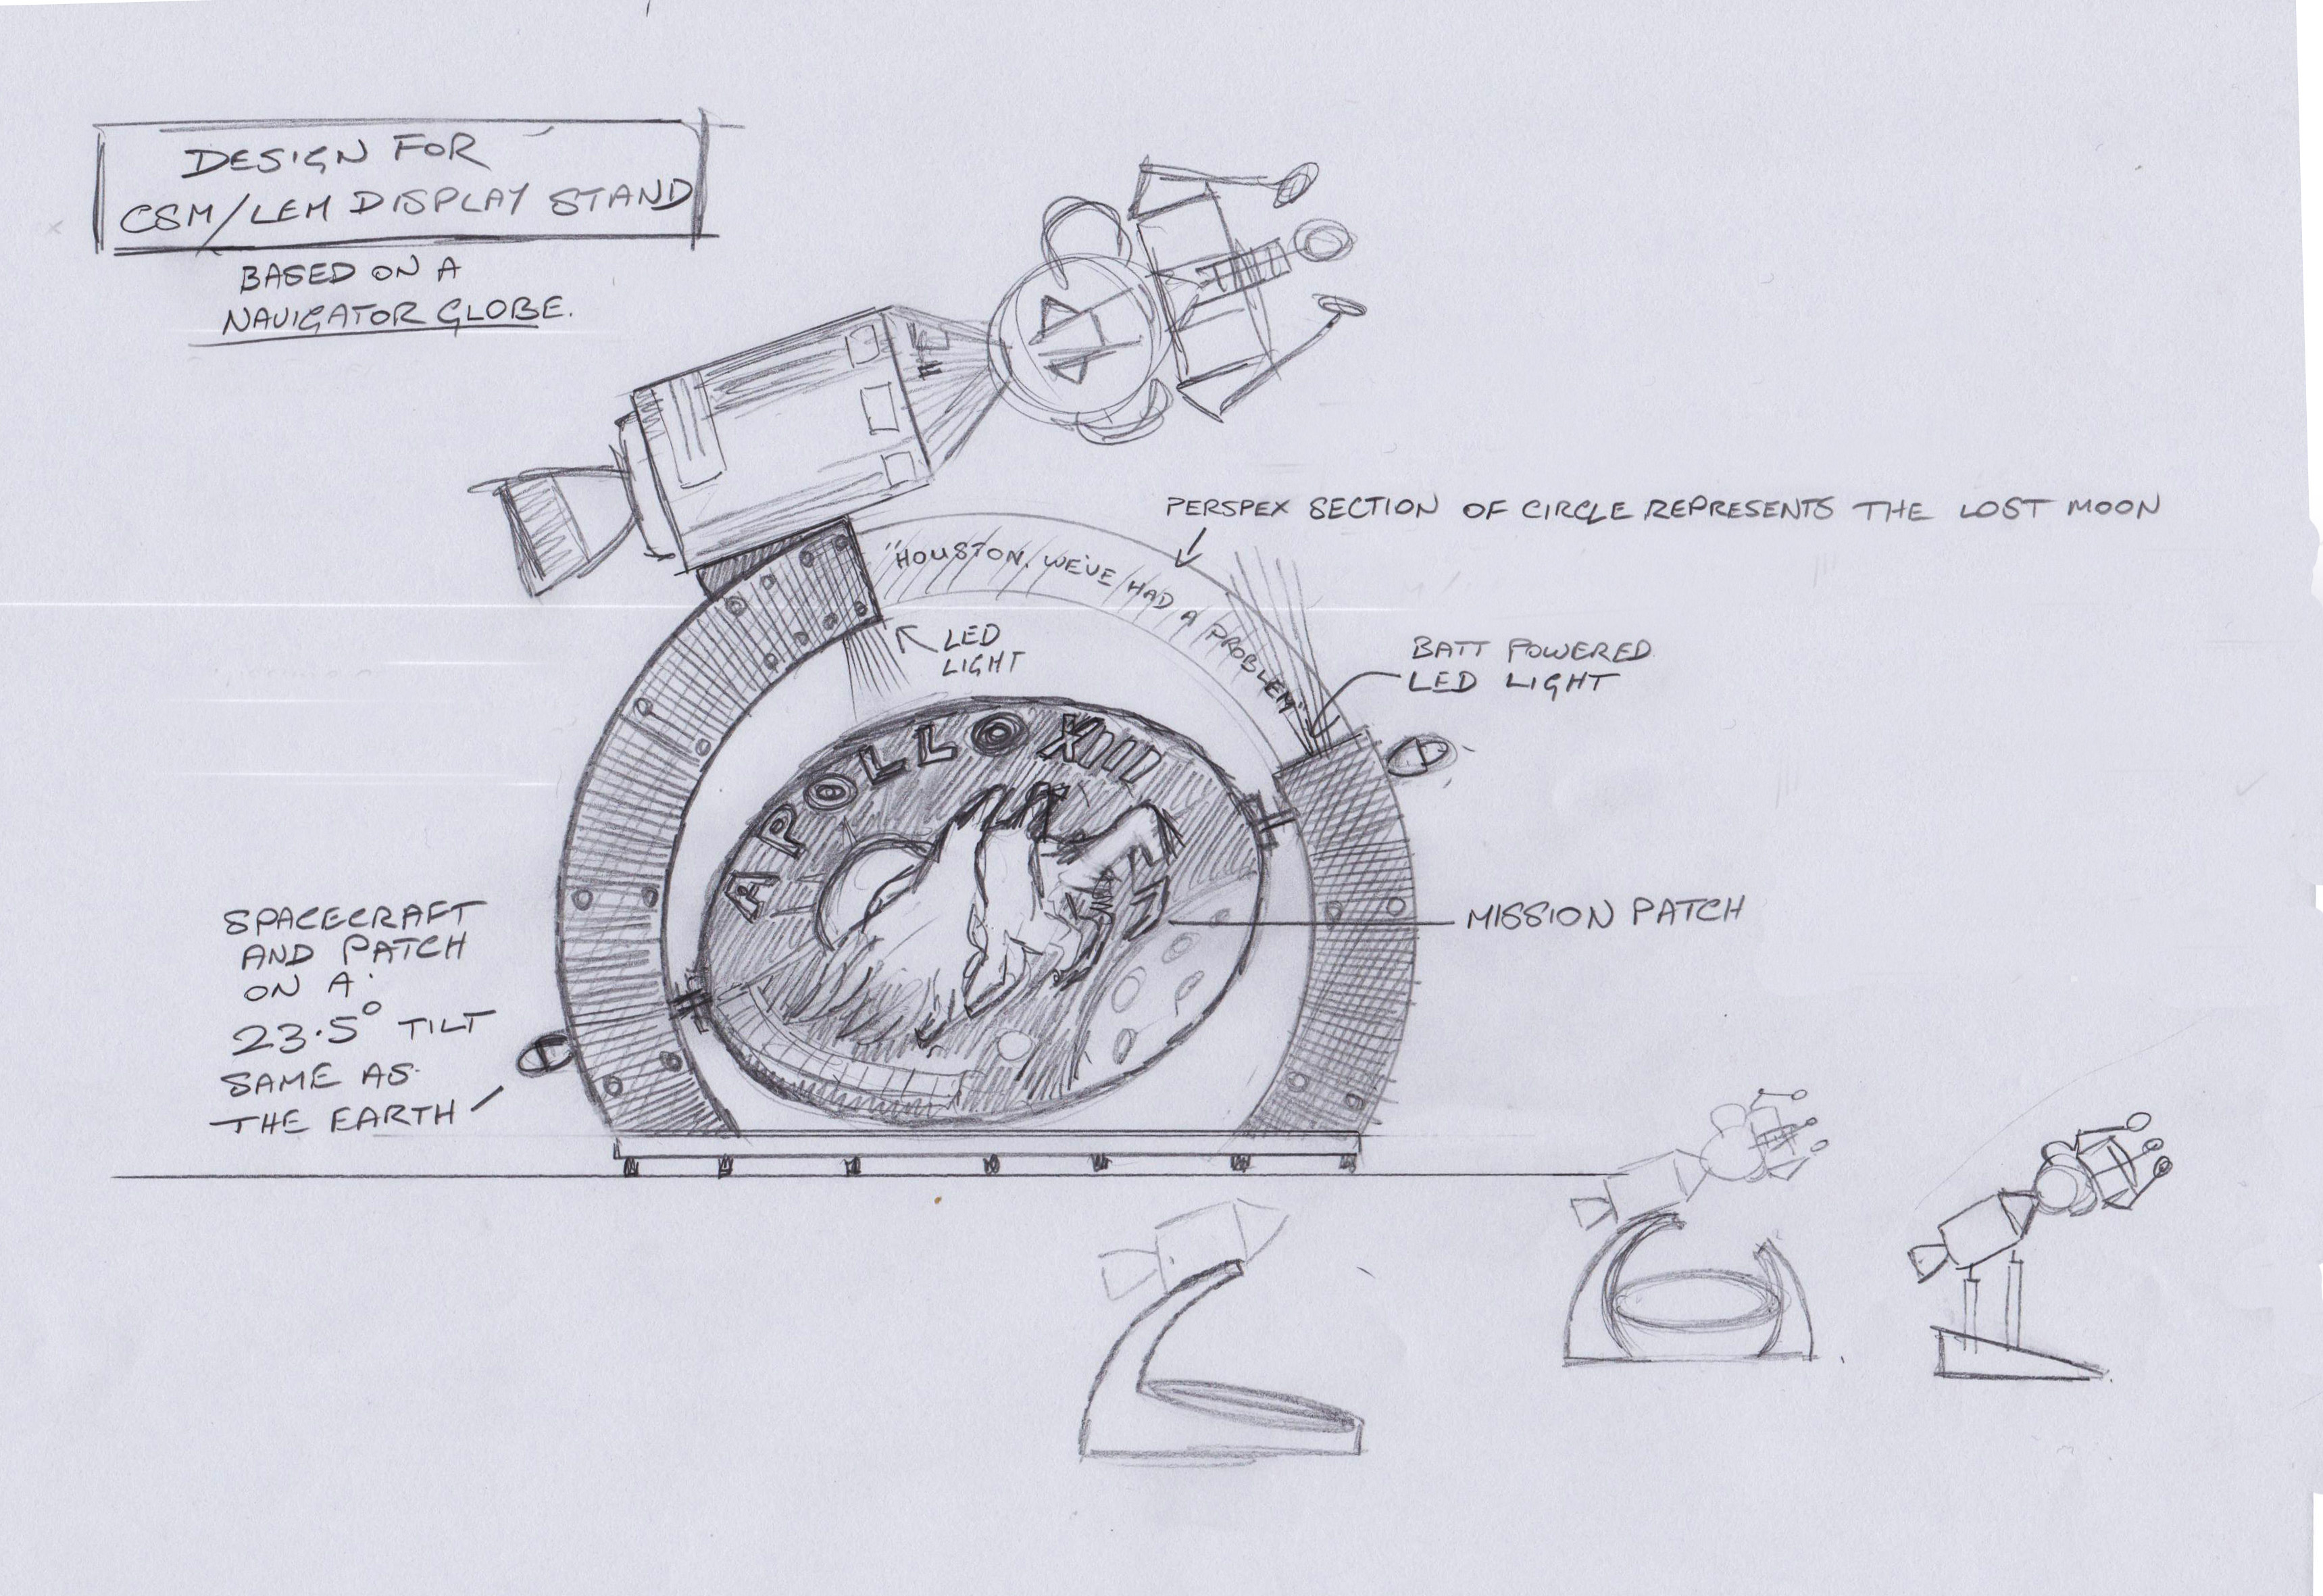 DESIGN FOR
CSM/LEM DISPLAY STAND
BASED ON A
NAVIGATOR GLOBE.
PERSPEX SECTION OF CIRCLE REPRESENTS THE LOST MOON
"HOUSTON. WE'VE HAD A PROBLEM"
LED
LIGHT
BATT POWERED
LED LIGHT
APOLLO XIII
MISSION PATCH
SPACECRAFT
AND PATCH
ON A
23.5° TILT
SAME AS
THE EARTH